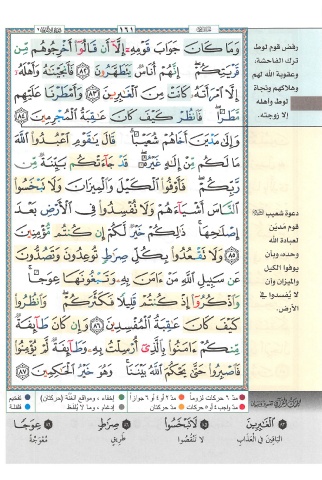 ١٦١
وَمَا كَانَ جَوَابَ قَوْمِهِ إِلَّا أَن قَالُوا أَخْرِجُوهُم مِّن
قَرْيَتِكُمْ إِنَّهُمْ أُنَاسٌ يَتَطَهَّرُونَ ٨٢ فَأَنجَيْنَاهُ وَأَهْلَهُ
إِلَّا امْرَأَتَهُ كَانَتْ مِنَ الْغَابِرِينَ ٨٣ وَأَمْطَرْنَا عَلَيْهِم
مَّطَرًا فَانظُرْ كَيْفَ كَانَ عَاقِبَةُ الْمُجْرِمِينَ ٨٤
وَإِلَىٰ مَدْيَنَ أَخَاهُمْ شُعَيْبًا قَالَ يَا قَوْمِ اعْبُدُوا اللَّهَ
مَا لَكُم مِّنْ إِلَٰهٍ غَيْرُهُ قَدْ جَاءَتْكُم بَيِّنَةٌ مِّن
رَّبِّكُمْ فَأَوْفُوا الْكَيْلَ وَالْمِيزَانَ وَلَا تَبْخَسُوا
النَّاسَ أَشْيَاءَهُمْ وَلَا تُفْسِدُوا فِي الْأَرْضِ بَعْدَ
إِصْلَاحِهَا ذَٰلِكُمْ خَيْرٌ لَّكُمْ إِن كُنتُم مُّؤْمِنِينَ
٨٥ وَلَا تَقْعُدُوا بِكُلِّ صِرَاطٍ تُوعِدُونَ وَتَصُدُّونَ
عَن سَبِيلِ اللَّهِ مَنْ آمَنَ بِهِ وَتَبْغُونَهَا عِوَجًا
وَاذْكُرُوا إِذْ كُنتُمْ قَلِيلًا فَكَثَّرَكُمْ وَانظُرُوا
كَيْفَ كَانَ عَاقِبَةُ الْمُفْسِدِينَ ٨٦ وَإِن كَانَ طَائِفَةٌ
مِّنكُمْ آمَنُوا بِالَّذِي أُرْسِلْتُ بِهِ وَطَائِفَةٌ لَّمْ يُؤْمِنُوا
فَاصْبِرُوا حَتَّىٰ يَحْكُمَ اللَّهُ بَيْنَنَا وَهُوَ خَيْرُ الْحَاكِمِينَ ٨٧
رفض قوم لوط
ترك الفاحشة،
وعقوبة الله لهم
وهلاكهم ونجاة
لوط وأهله
إلا زوجته.
دعوة شعيب
قوم مدين
لعبادة الله
وحده، وبأن
يوفوا الكيل
والميزان وأن
لا يُفسدوا في
الأرض.
مدّ ٦ حركات لزوماً مدّ ٢ أو ٤ أو ٦ جوازاً إخفاء، ومواقع الغنّة (حركتان) تفخيم
مدّ واجب ٤ أو ٥ حركات مدّ حركتان إدغام، وما لا يُلفظ قلقلة
٨٣ الْغَابِرِينَ
الْبَاقِينَ فِي الْعَذَابِ
٨٥ لَا تَبْخَسُوا
لَا تَنْقُصُوا
٨٦ صِرَاطٍ
طَرِيقٍ
٨٦ عِوَجًا
مُعْوَجَّةً